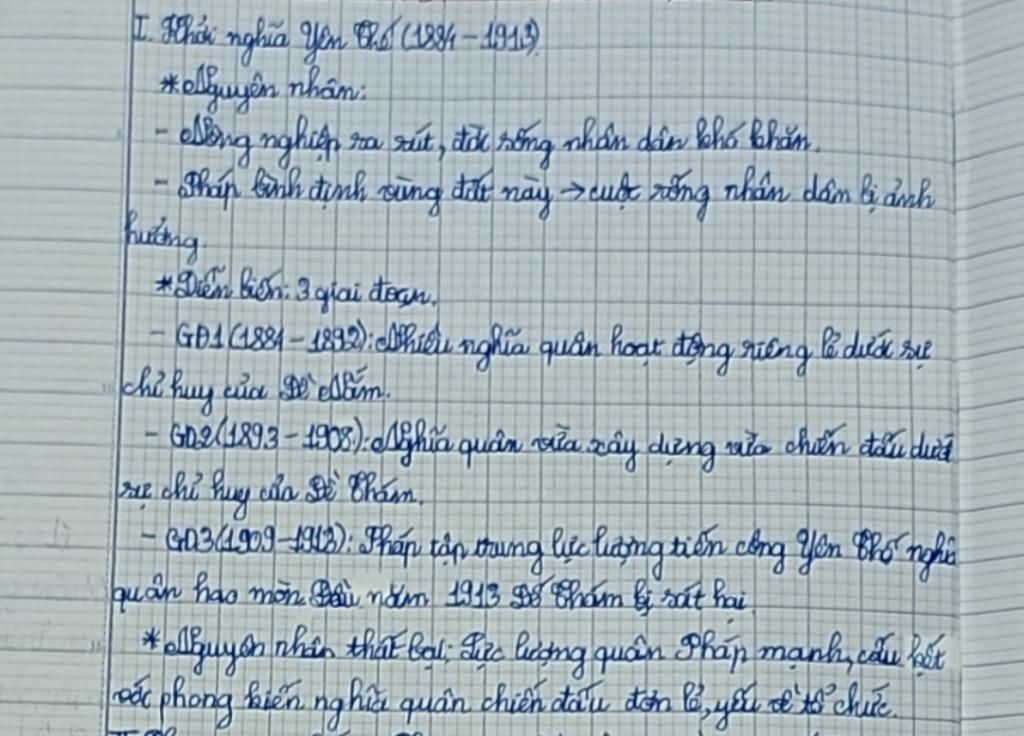 I. Khởi nghĩa Yên Thế (1884 - 1913)
* Nguyên nhân:
- Nông nghiệp sa sút, đời sống nhân dân khó khăn.
- Pháp bình định vùng đất này → cuộc sống nhân dân bị ảnh
hưởng
* Diễn biến: 3 giai đoạn.
- GĐ1 (1884 - 1892): Nhiều nghĩa quân hoạt động riêng lẻ dưới sự
chỉ huy của Đề Nắm.
- GĐ2 (1893 - 1908): Nghĩa quân vừa xây dựng vừa chiến đấu dưới
sự chỉ huy của Đề Thám.
- GĐ3 (1909 - 1913): Pháp tập trung lực lượng tiến công Yên Thế nghĩa
quân hao mòn. Đầu năm 1913 Đề Thám bị sát hại.
* Nguyên nhân thất bại: Lực lượng quân Pháp mạnh, cấu kết
với phong kiến nghĩa quân chiến đấu đơn lẻ, yếu về tổ chức.